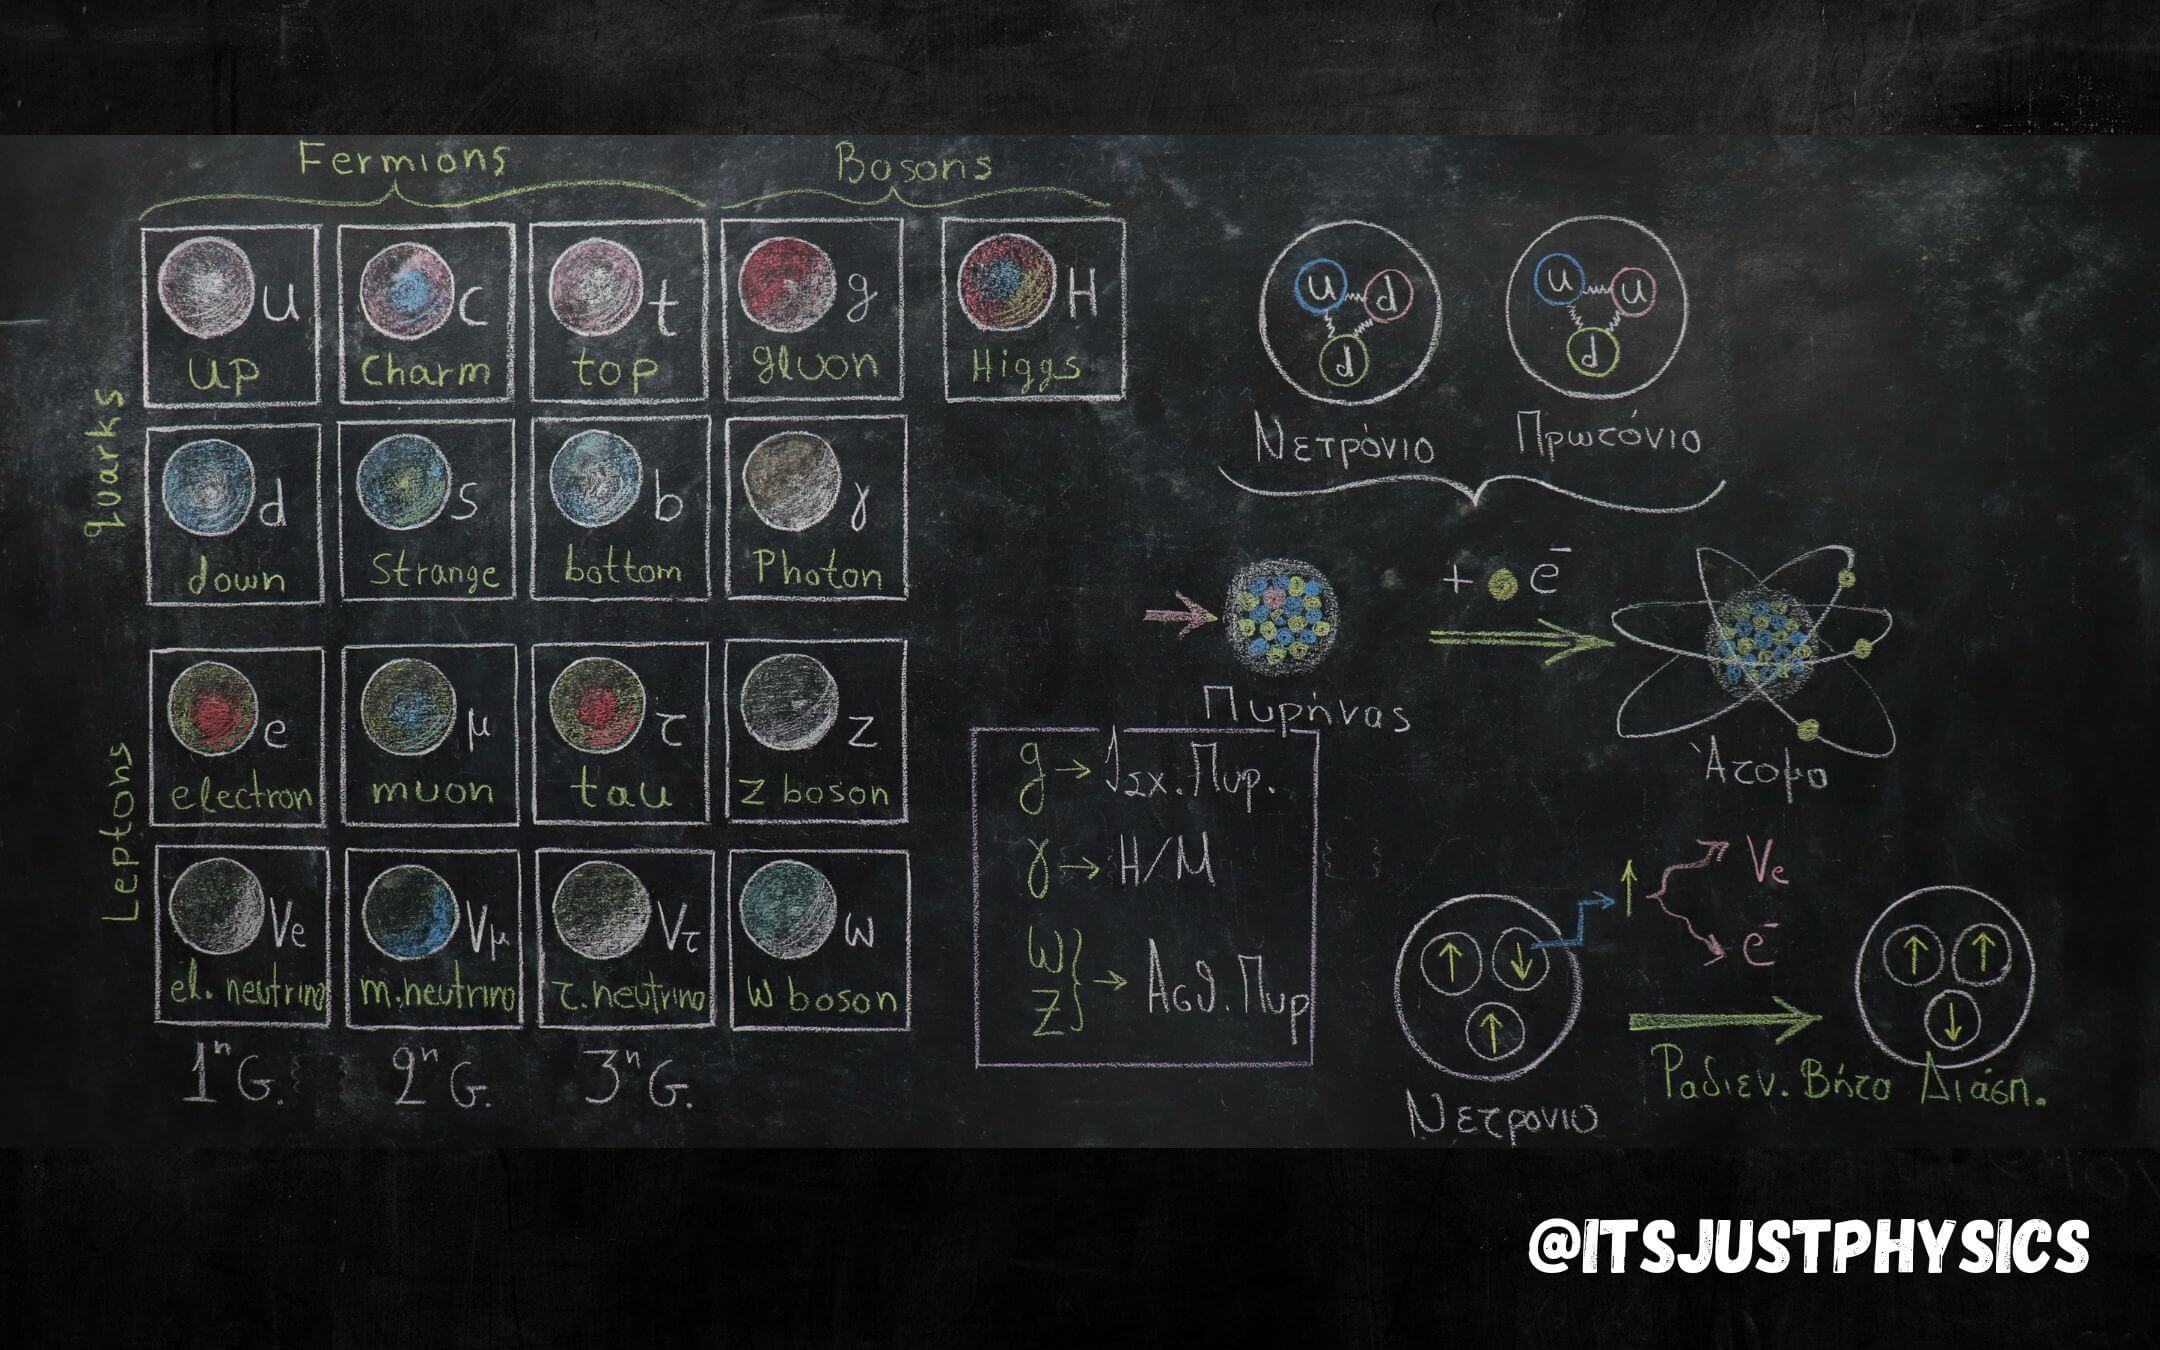 Fermions
Bosons
quarks
u
up
c
charm
t
top
g
gluon
H
Higgs
d
down
s
strange
b
bottom
γ
Photon
Leptons
e
electron
μ
muon
τ
tau
Z
Z boson
Ve
el. neutrino
Vμ
m. neutrino
Vτ
τ. neutrino
W
W boson
1η G.
2η G.
3η G.
u d
d
Νετρόνιο
u u
d
Πρωτόνιο
Πυρήνας
+ e-
Άτομο
g → Ισχ. Πυρ.
γ → Η/Μ
W
Z } → Ασθ. Πυρ
↑ ↓
↑
Νετρονιο
↑
Ve
e-
Ραδιεν. Βήτα Διάσπ.
↑ ↑
↓
@ITSJUSTPHYSICS